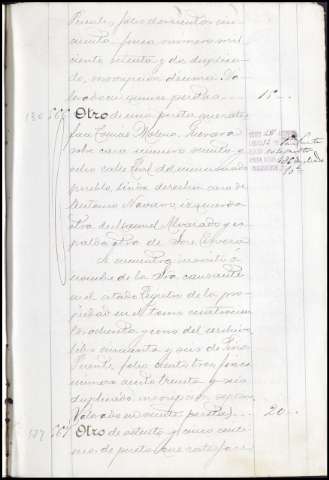 Puente, folio doscientos cin
cuenta finca número mil
ciento treinta y dos duplica
do, inscripción décima. Va
lorado en quince pesetas 15
130 566 Otro de una peseta que satis
face Tomás Molina Guevara
sobre casa número veinte y
ocho calle Real del mencionado
pueblo, linda derecha casa de
Antonio Navarro, izquierda
otra de Manuel Alvarado y es
palda otra de José Rivera
Se encuentra inscrito a
nombre de la Sra causante
en el citado Registro de la pro
piedad en el tomo cuatrocien
tos ochenta y cinco del archivo
libro cincuenta y seis de Pinos
Puente, folio ciento tres, finca
número ciento treinta y seis
duplicado inscripción séptima
Valorado en veinte pesetas 20
177 567 Otro de setenta y cinco cénti
mos de peseta que satisface